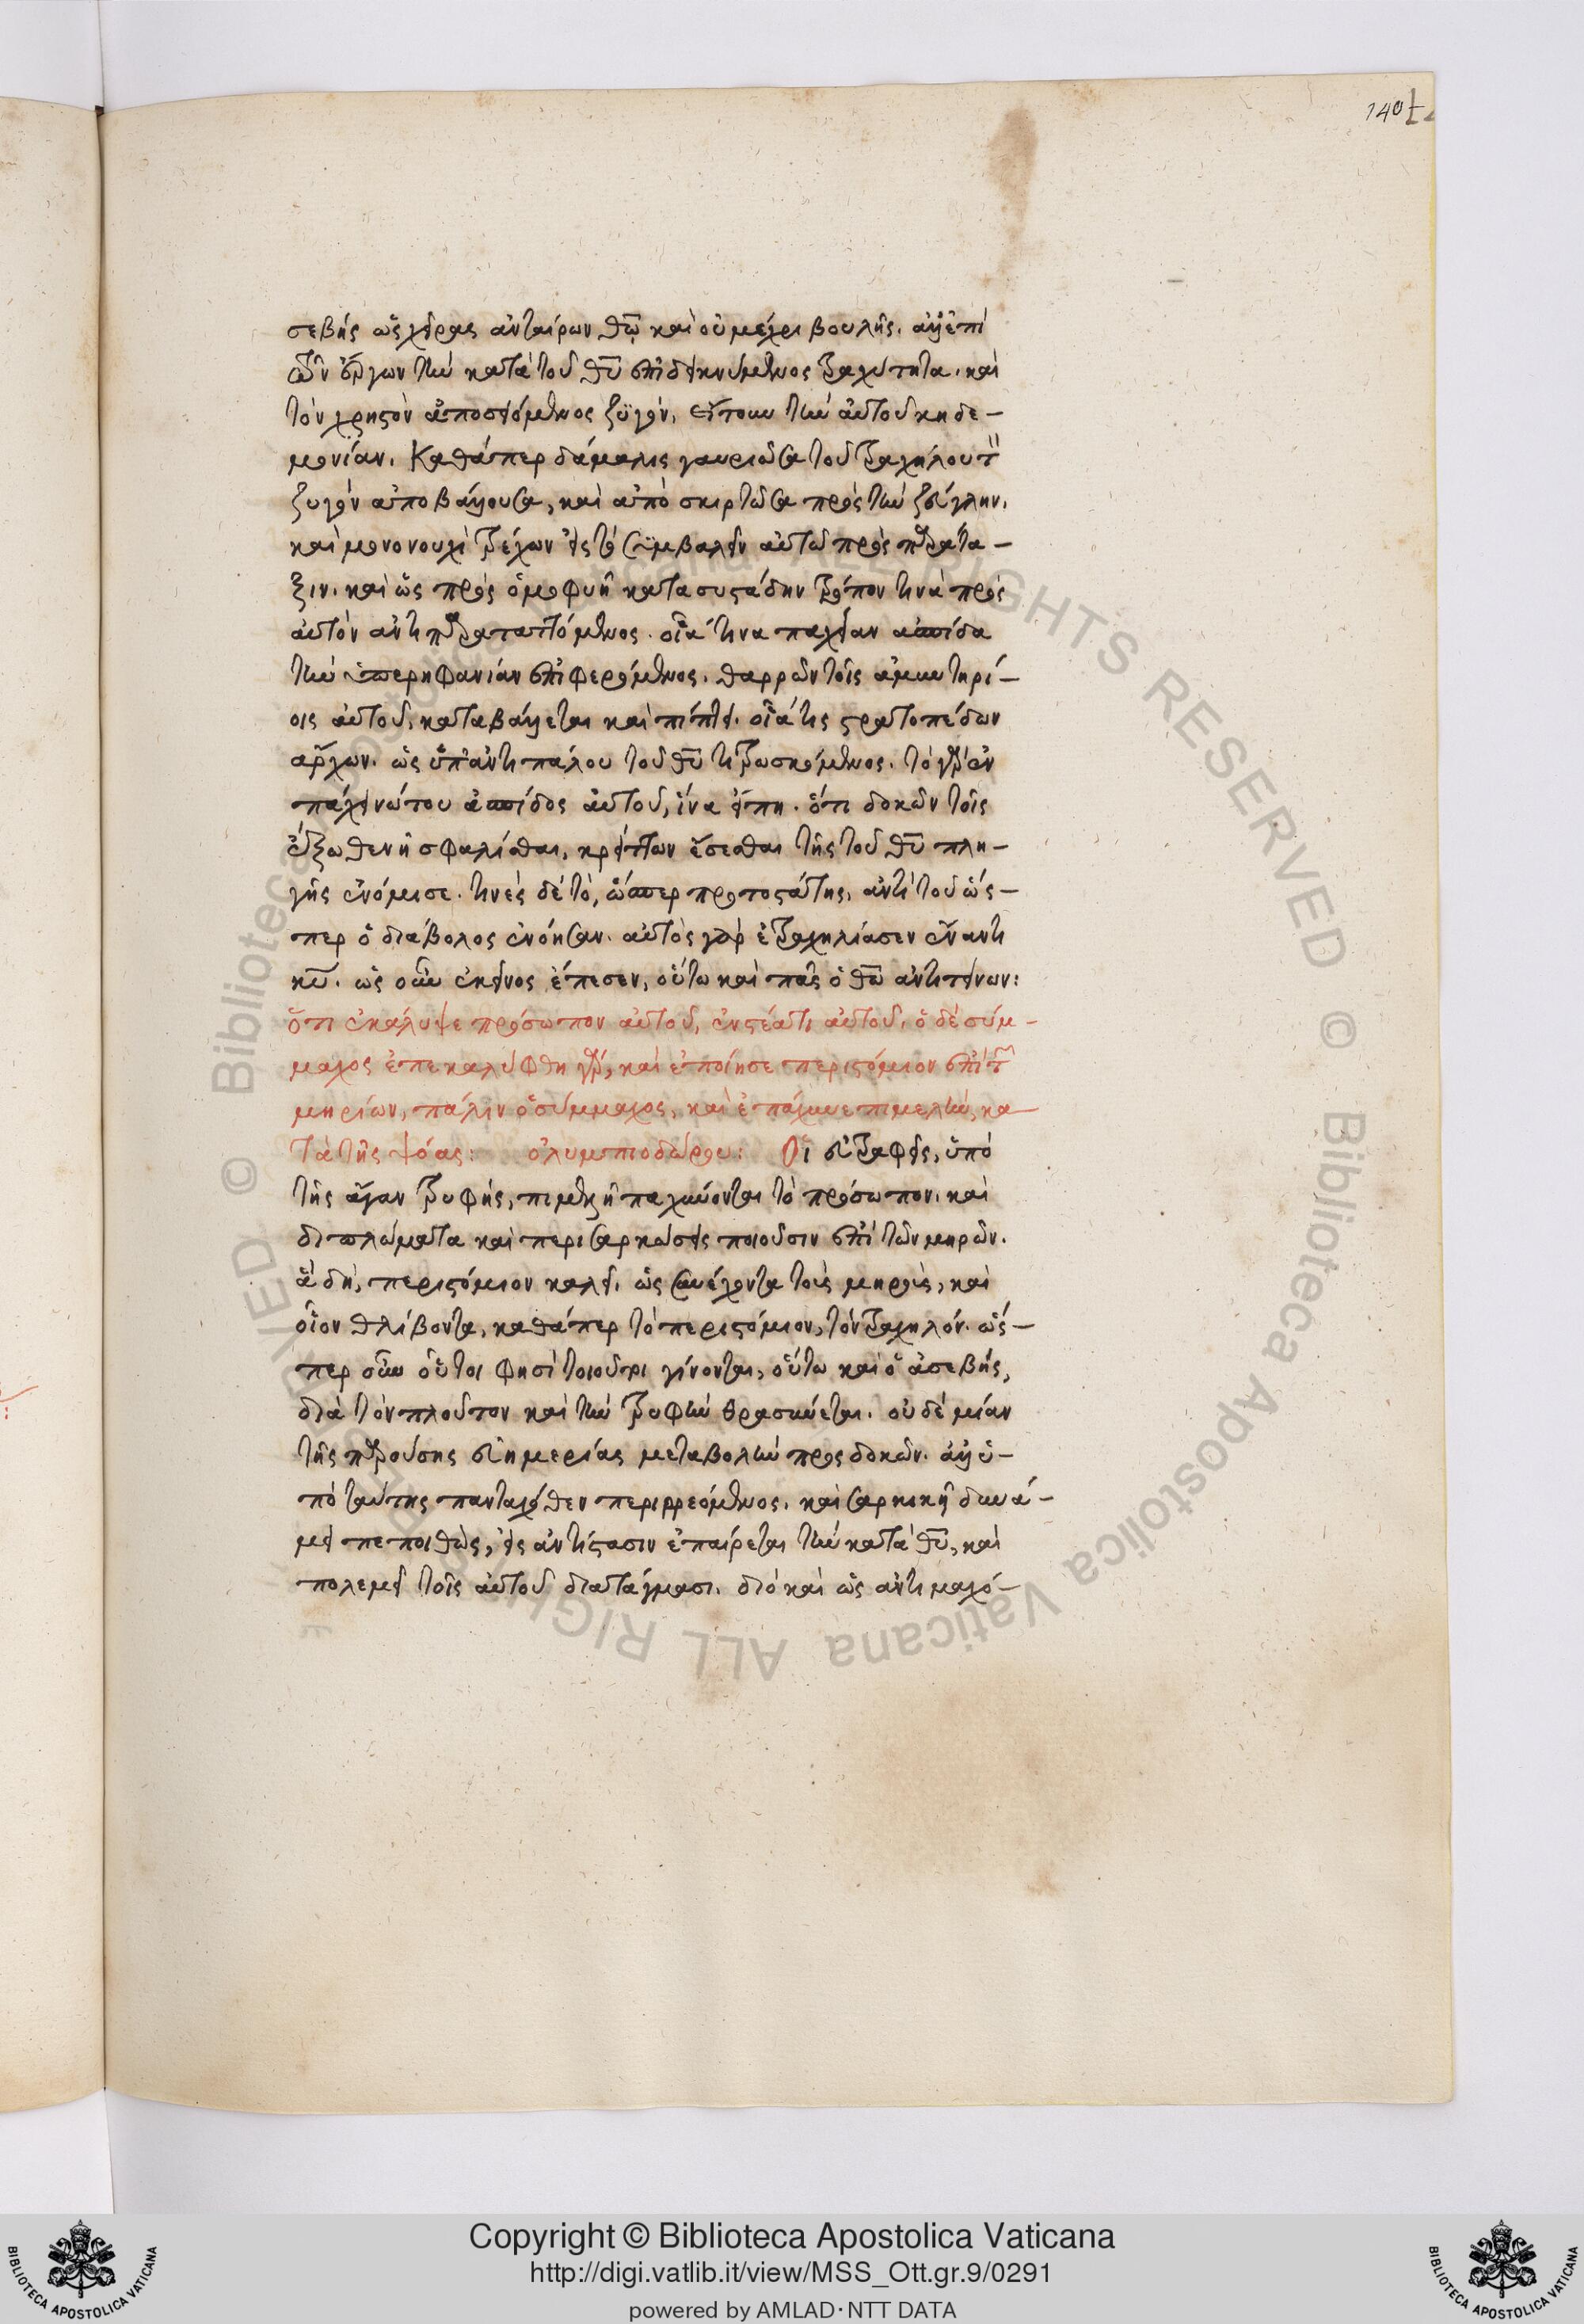 140
σεβὴς ὡς χεῖρας ἀνταίρων θῶ καὶ οὐ μέχρι βουλῆς. ἀλλ' ἐπὶ
τῶν ἔργων τὴν κατὰ τοῦ θῦ ἐπιδεικνύμενος τραχύτητα. καὶ
τὸν χρηστὸν ἀποσειόμενος ζυγόν, εἴτουν τὴν αὐτοῦ κηδε-
μονίαν. Καθάπερ δάμαλις γαυριῶσα τοῦ τραχήλου τ
ζυγὸν ἀποβάλλουσα, καὶ ἀποσκιρτῶσα πρὸς τὴν ζεύγλην.
καὶ μονονουχὶ τρέχων εἰς τὸ συμβαλεῖν αὐτῶ πρὸς παράτα-
ξιν. καὶ ὡς πρὸς ὁμοφυῆ κατασυστάδην τρόπον τινὰ πρὸς
αὐτὸν ἀντιπαραταττόμενος. οἷά τινα παχεῖαν ἀσπίδα
τὴν ὑπερηφανίαν ἐπιφερόμενος. θαρρῶν τοῖς ἀμυντηρί-
οις αὐτοῦ, καταβάλλεται καὶ πίπτει. οἷά τις στρατοπέδων
ἄρχων. ὡς ὑπ' ἀντιπάλου τοῦ θῦ τιτρωσκόμενος. τὸ γὰρ ἐν
πάχει νώτου ἀσπίδος αὐτοῦ, ἵνα εἴπη. ὅτι δοκῶν τοῖς
ἔξωθεν ἠσφαλίσθαι, κρείττων ἔσεσθαι τῆς τοῦ θῦ πλη-
γῆς ἐνόμισε. τινὲς δὲ τὸ, ὥσπερ πρωτοστάτης, ἀντὶ τοῦ ὥσ-
περ ὁ διάβολος ἐνόησαν. αὐτὸς γὰρ ἐτραχηλίασεν ἔναντι
κῦ. ὡς οὖν ἐκεῖνος ἔπεσεν, οὕτω καὶ πᾶς ὁ θῶ ἀντιτείνων:
ὅτι ἐκάλυψε πρόσωπον αὐτοῦ, ἐν στέατι αὐτοῦ. ὁ δὲ σύμ-
μαχος ἐπεκαλύφθη γάρ, καὶ ἐποίησε περιστόμιον ἐπὶ τῶν
μηρίων, πάλιν ὁ σύμμαχος, καὶ ἐπάχυνε πιμελὴν, κα
τὰ τῆς ψόας: ὀλυμπιοδώρου: Οἱ εὐτραφεῖς, ὑπὸ
τῆς ἄγαν τρυφῆς, πιμελῆ παχύνονται τὸ πρόσωπον. καὶ
διπλώματα καὶ περισαρκώσεις ποιοῦσιν ἐπὶ τῶν μηρῶν.
ἃ δὴ, περιστόμιον καλεῖ. ὡς συνέχοντα τοὺς μηροὺς, καὶ
οἷον θλίβοντα, καθάπερ τὸ περιστόμιον, τὸν τραχηλόν. ὥσ-
περ οὖν οὗτοι φησὶ τοιοῦτοι γίνονται, οὕτω καὶ ὁ ἀσεβὴς,
διὰ τὸν πλοῦτον καὶ τὴν τρυφὴν θρασύνεται. οὐδὲ μίαν
τῆς παρούσης εὐημερίας μεταβολὴν προσδοκῶν. ἀλλ' ὑ-
πὸ ταύτης πανταχόθεν περιρρεόμενος. καὶ σαρκικῆ δυνά-
μει πεποιθὼς, εἰς ἀντίστασιν ἐπαίρεται τὴν κατὰ θῦ, καὶ
πολεμεῖ τοῖς αὐτοῦ διατάγμασι. διὸ καὶ ὡς ἀντιμαχό-
Copyright © Biblioteca Apostolica Vaticana
http://digi.vatlib.it/view/MSS_Ott.gr.9/0291
powered by AMLAD·NTT DATA